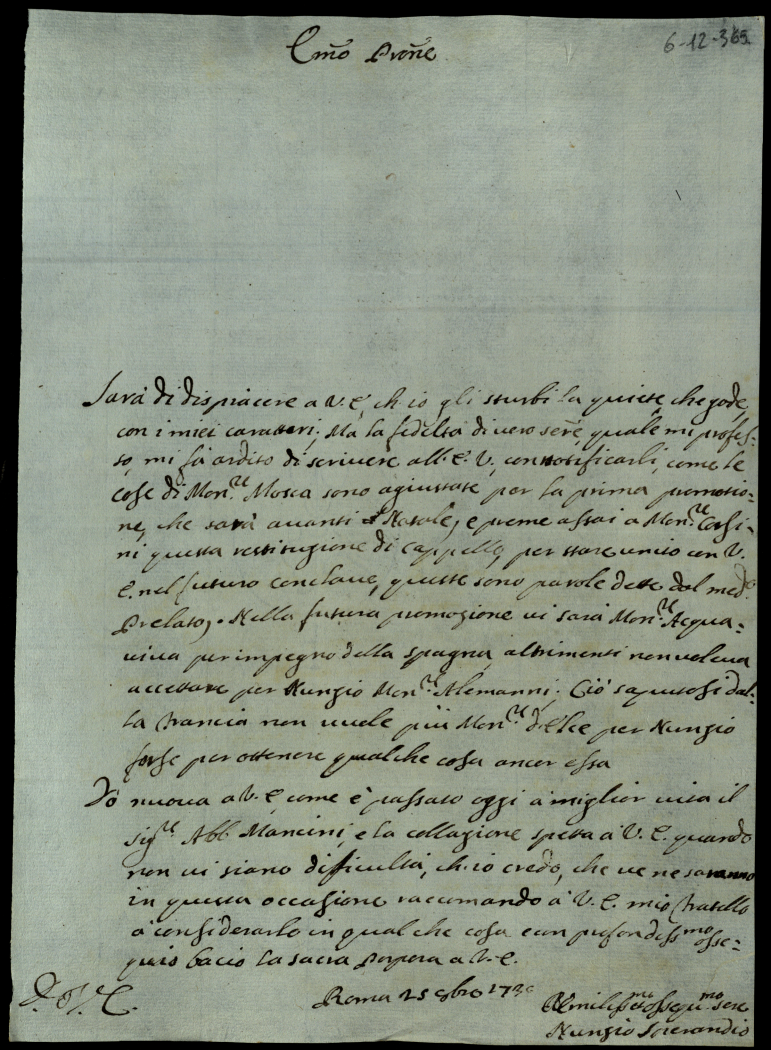 Em̃o Prone
6-12-365.
Sarà di dispiacere a V. E. ch'io gli sturbi la quiete, che gode
con i miei caratteri; Ma la fedeltà di vero serẽ, quale mi profes-
so, mi fà ardito di scrivere all'E. V., con notificarli, come le
cose di Mon.re Mosca sono agiustate per la prima promotio-
ne, che sarà avanti Natale, e preme assai a Mon.re Corsi-
ni questa restituzione di cappello, per stare unito con V.
E. nel futuro conclave, queste sono parole dette dal med.o
Prelato, Nella futura promozione vi sarà Mon.re Acqua-
viva per impegno della spagna, altrimenti non voleva
accettare per Nunzio Mon.re Alemanni; Ciò saputosi dal-
la francia non vuole più Mon.re d'Elce per Nunzio
forse per ottenere qualche cosa ancor essa
Dò nuova a V. E. come è passato oggi à miglior vita il
sig.re Abb. Mancini, e la collazione spetta à V. E. quando
non vi siano difficultà, ch'io credo, che ve ne saranno
in questa occasione raccomando à V. E. mio fratello
à considerarlo in qualche cosa e con profondiss.mo osse-
quio bacio la sacra Porpora a V. E.
D. V. E.
Roma 25 9bre 173
Umiliss.mo et ossequ.mo sere
Nunzio Sperandio